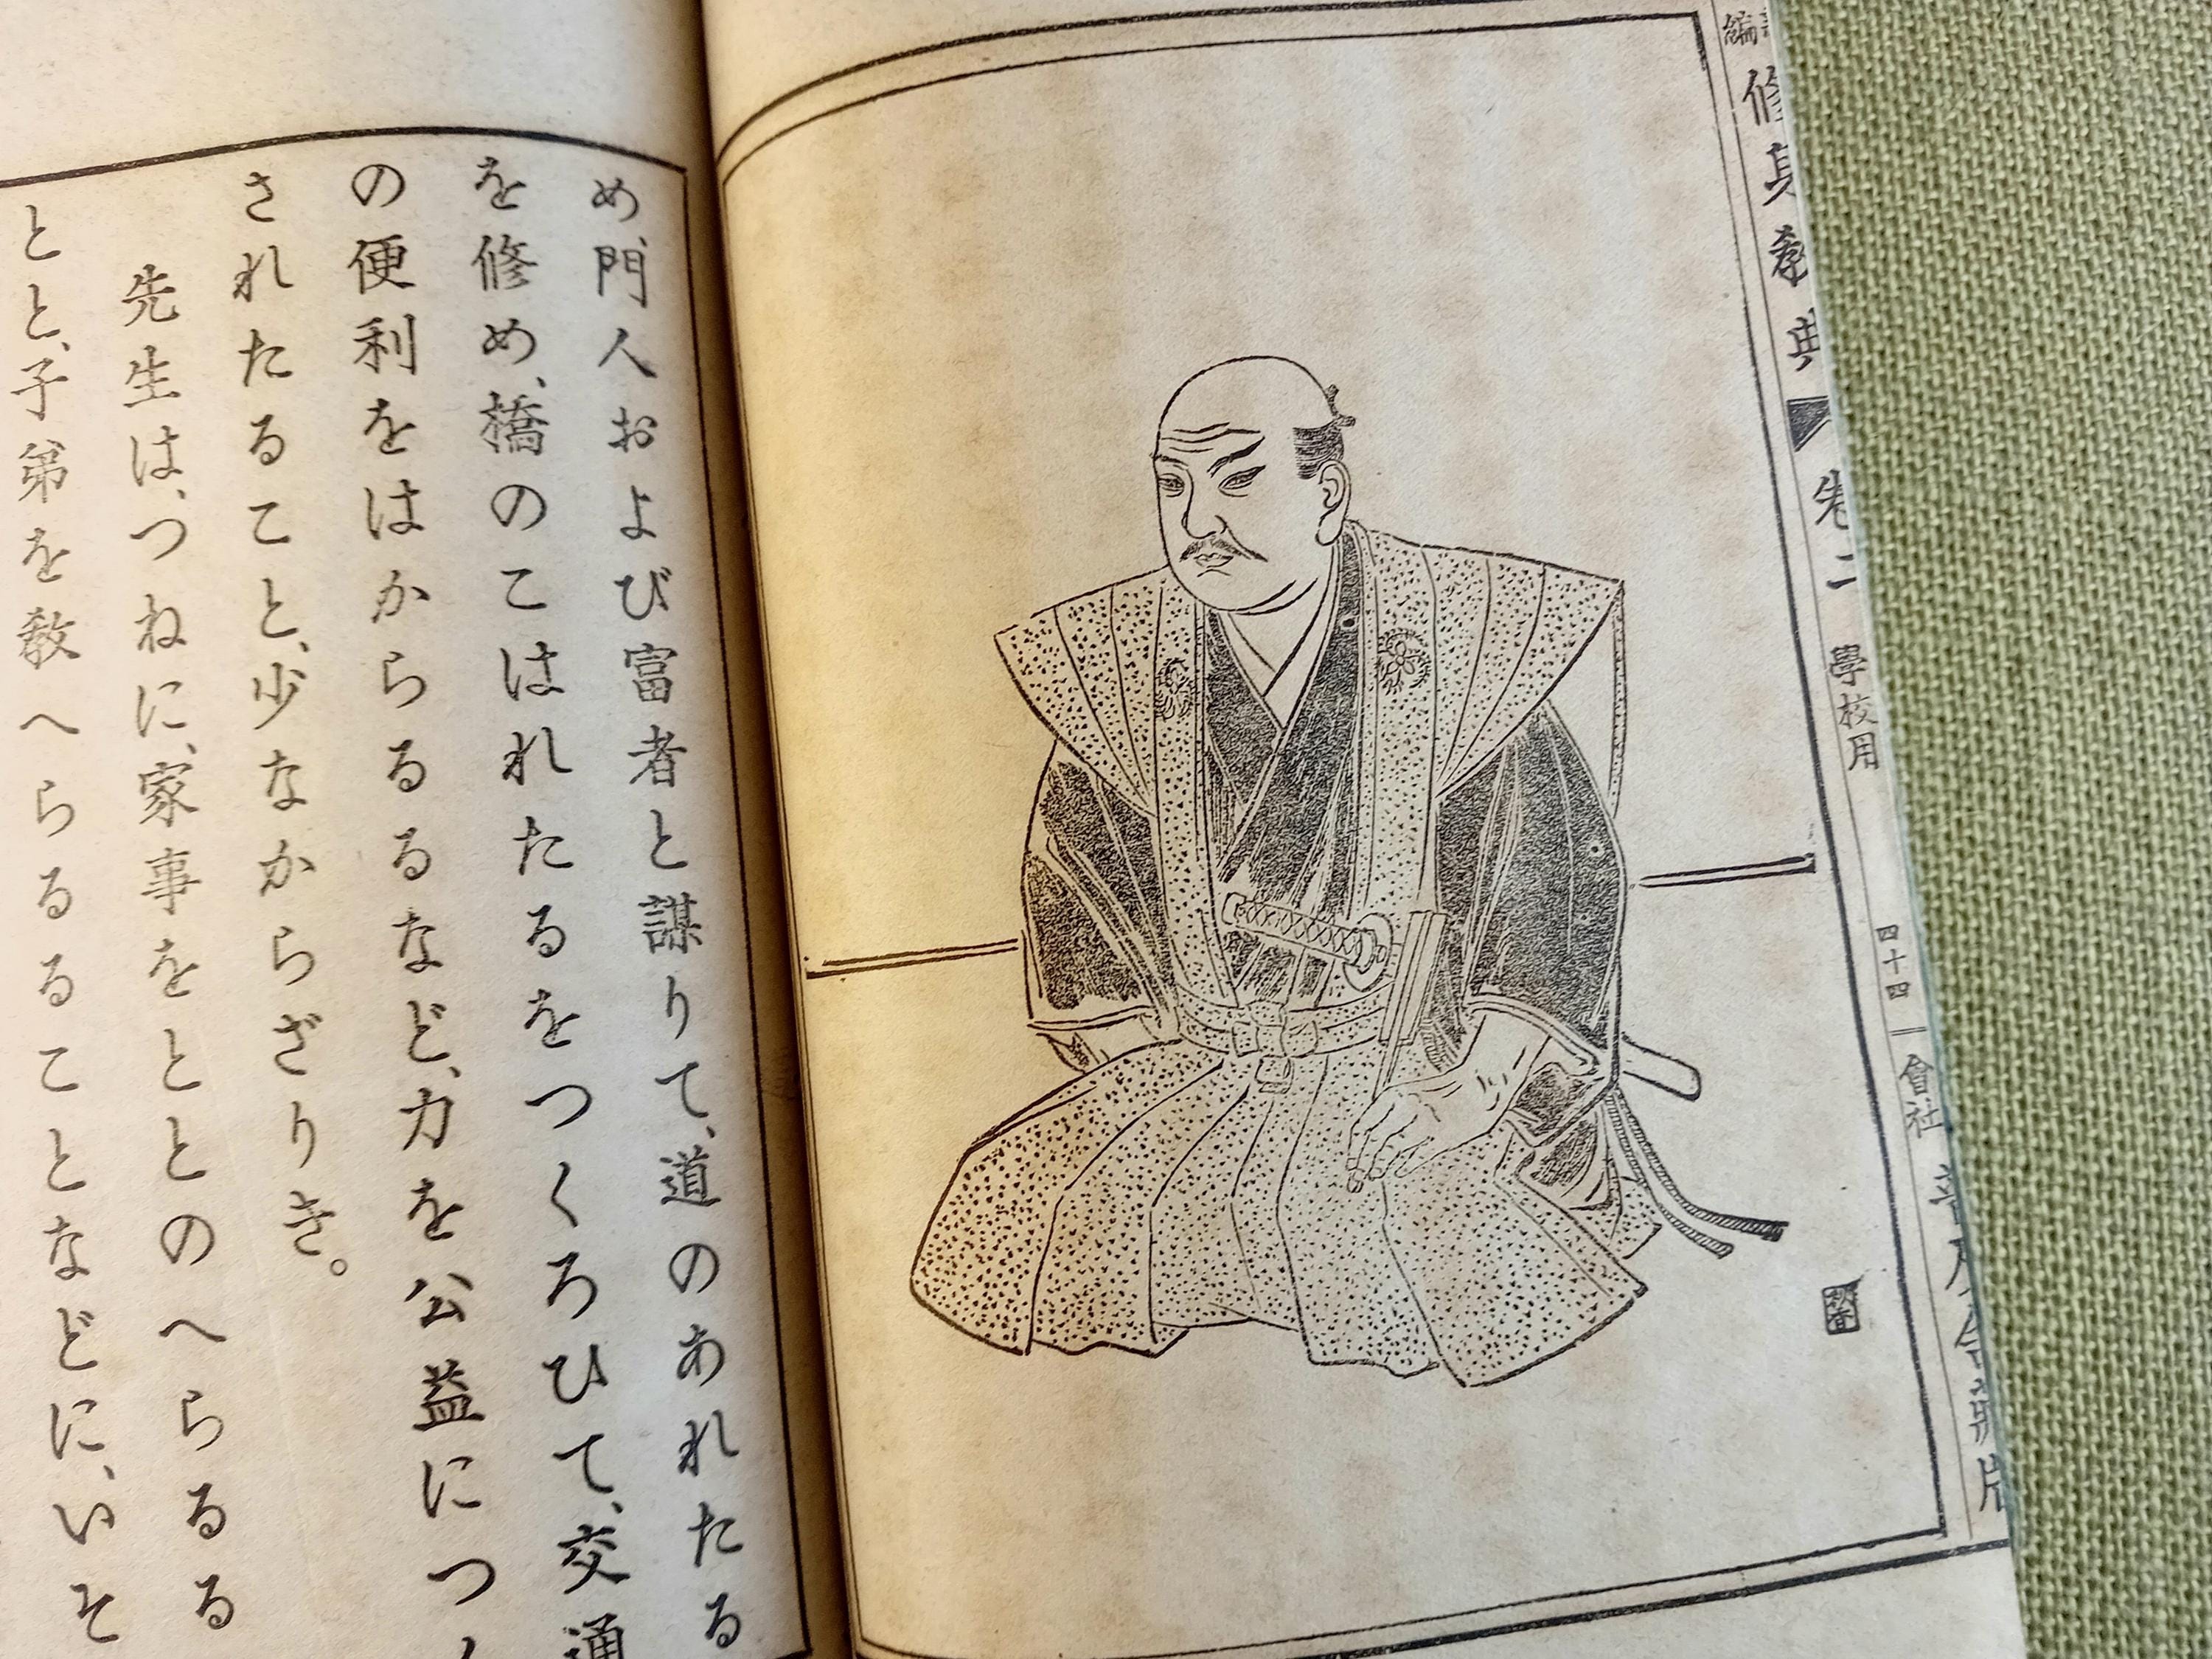 修身教典
卷二
學校用
四十四
會社
め、門人および富者と謀りて、道のあれたる
を修め、橋のこはれたるをつくろひて、交通
の便利をはからるるなど、力を公益につ
されたること、少なからざりき。
先生は、つねに、家事をととのへらるる
とと、子弟を敎へらるることなどに、いそ